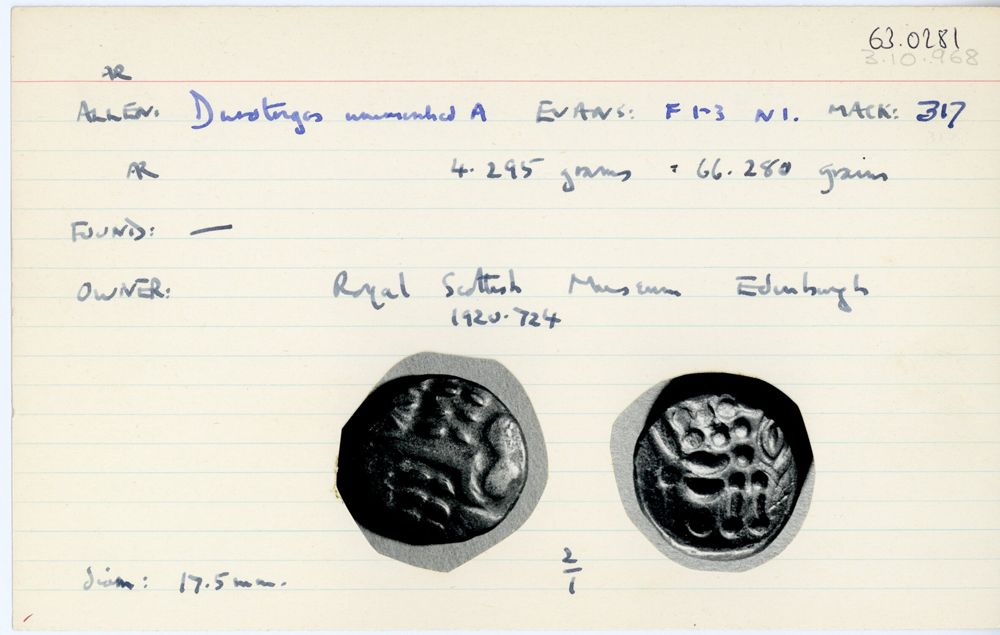 63.0281
3.10.968
AR
ALLEN: Durotriges uninscribed A EVANS: F 1-3 N1. MACK: 317
AR 4.295 grams = 66.280 grains
FOUND: —
OWNER: Royal Scottish Museum Edinburgh
1920.724
diam: 17.5mm. 2/1